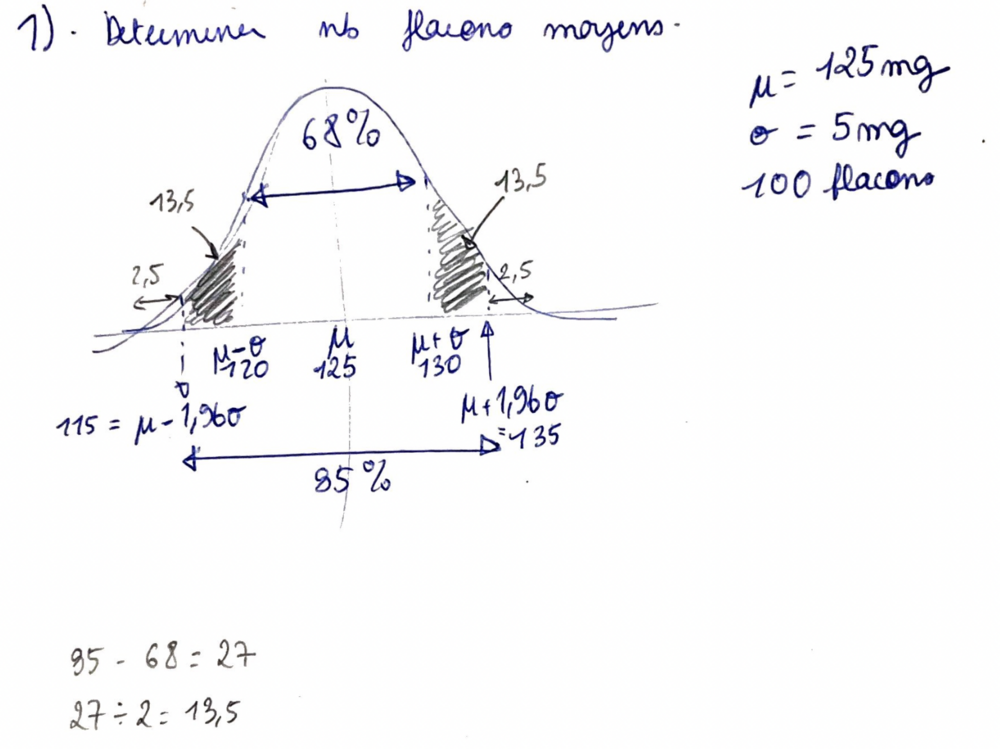 1). Determiner nb flacons moyens.
μ = 125 mg
σ = 5 mg
100 flacons
68%
13,5
13,5
2,5
2,5
μ-σ
120
μ
125
μ+σ
130
115 = μ - 1,96σ
μ+1,96σ
=135
95%
95 - 68 = 27
27 ÷ 2 = 13,5